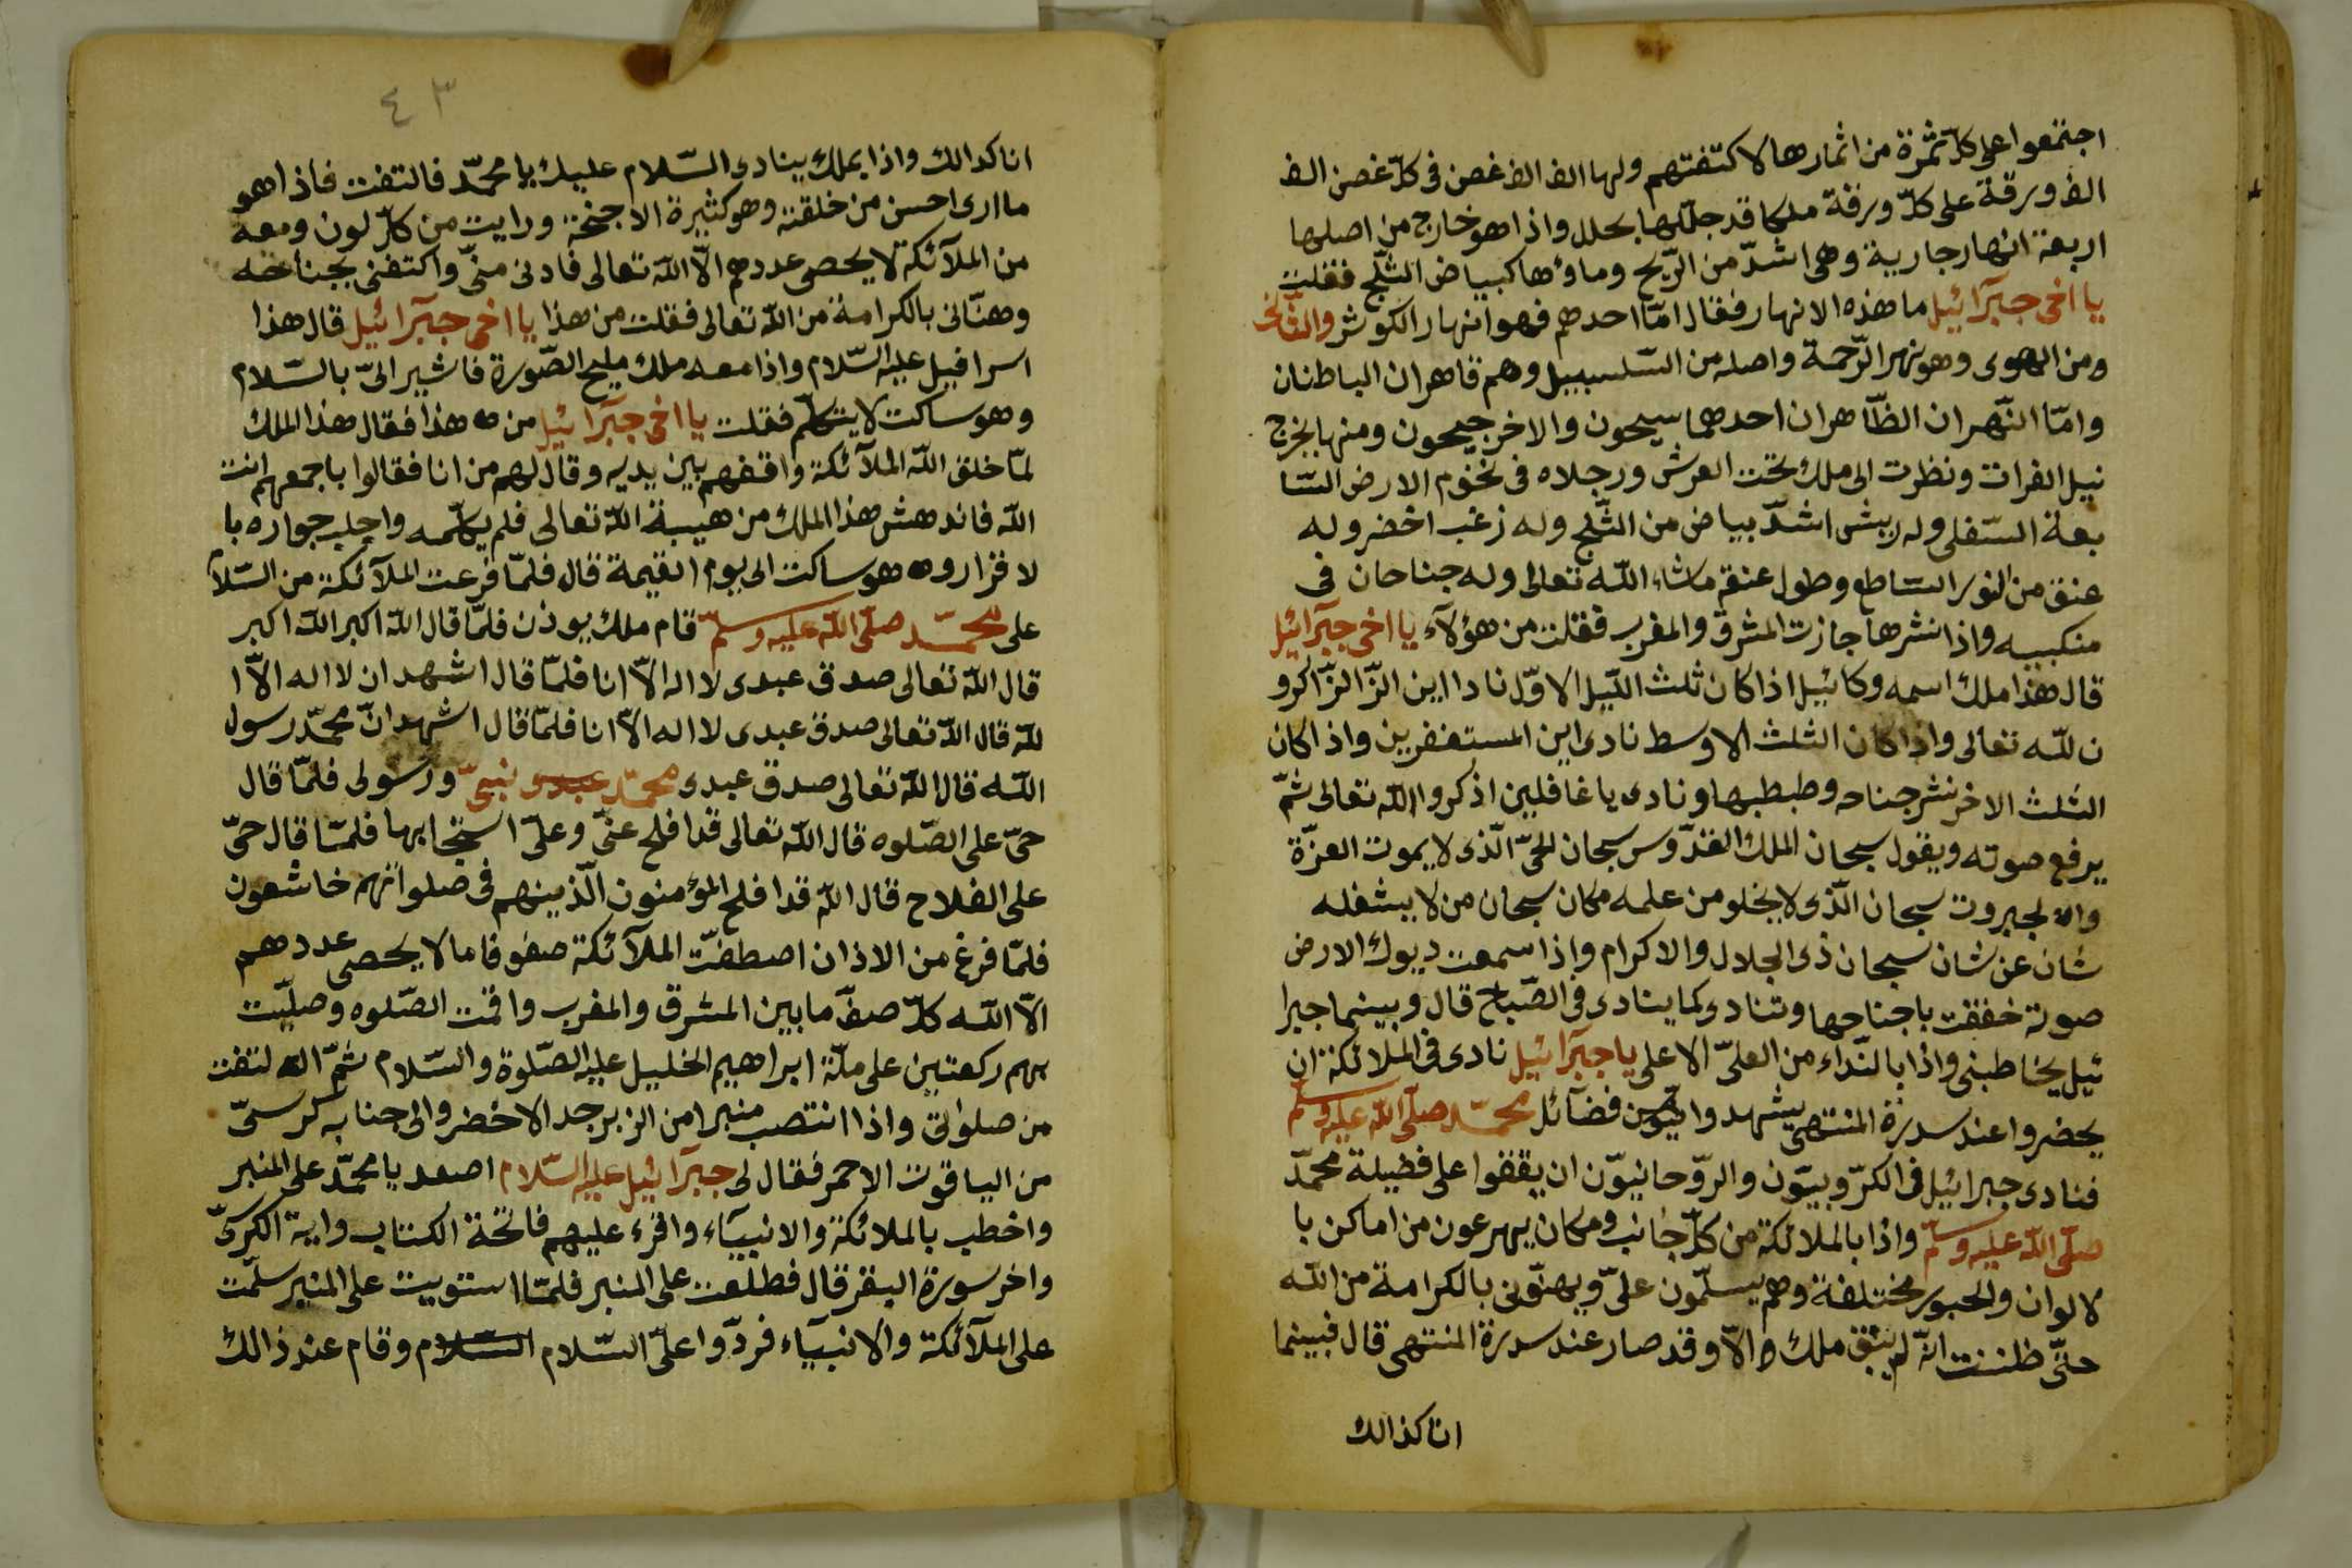 اجتمعوا على كلّ ثمرة من اثمارها لاكتفتهم ولها الف الف غصن فى كلّ غصن الف
الف ورقة على كلّ ورقة ملكا قد جلّلها بحلل واذا هو خارج من اصلها
اربعة انهار جارية وهى اشدّ من الرّيح وماؤها كبياض الثّلج فقلت
يا اخى جبرآئيل ما هذه الانهار فقال امّا احدهم فهو انهار الكوثر والثّانى
ومن الهوى وهو نهر الرّحمة واصله من السّلسبيل وهم قاهران الباطنان
وامّا النّهران الظّاهران احدهما سيحون والاخر جيحون ومنها يخرج
نيل الفرات ونظرت الى ملك تحت العرش ورجلاه فى تخوم الارض السّا
بعة السّفلى وله ريش اشدّ بياض من الثّلج وله زغب اخضر وله
عنق من النور السّاطع وطول عنقه ماشاء اللّه تعالى وله جناحان فى
منكبيه واذا نشرها جازت المشرق والمغرب فقلت من هؤلآء يا اخى جبرآئيل
قال هذا ملك اسمه وكائيل اذا كان ثلث اللّيل الاوّل نادا اين الزّا الزّاكرو
ن للّه تعالى واذا كان الثلث الاوسط نادى اين المستغفرين واذا كان
الثلث الاخر نشر جناحه وطبطبها ونادى يا غافلين اذكروا اللّه تعالى ثمّ
يرفع صوته ويقول سبحان الملك القدّوس سبحان الحىّ الّذى لا يموت العزّة
والجبروت سبحان الّذى لا يخلو من علمه مكان سبحان من لا يشغله
شان عن شان سبحان ذى الجلال والاكرام واذا سمعت ديوك الارض
صوته خفقت باجناحها وتنادى كما ينادى فى الصّباح قال وبينما جبرا
ئيل يخاطبنى واذا بالنّداء من العلىّ الاعلى يا جبرآئيل نادى فى الملائكة ان
يحضروا عند سدرة المنتهى يشهدوا فضآئل محمّد صلّى اللّه عليه وسلّم
فنادى جبرائيل فى الكرّوبيّون والرّوحانيّون ان يقفوا على فضيلة محمّد
صلّى اللّه عليه وسلّم واذا بالملائكة من كلّ جانب ومكان يهرعون من اماكن با
لالوان والحبور مختلفة وهم يسلّمون علىّ ويهنّونى بالكرامة من اللّه
حتّى ظننت انّه لم يبق ملك الّا وقد صار عند سدرة المنتهى قال فبينما
انا كذالك
٤٣
انا كدالك واذا بملك ينادى السّلام عليك يا محمّد فالتفت فاذا هو
ما ارى احسن من خلقته وهو كثيرة الاجنحة ورايت من كلّ لون ومعه
من الملآئكة لا يحصى عددهم الّا اللّه تعالى فادنى منّى واكتفنى بجناحه
وهنّانى بالكرامة من اللّه تعالى فقلت من هذا يا اخى جبرآئيل قال هذا
اسرافيل عليه السّلام واذا معه ملك مليح الصّورة فاشير الىّ بالسّلام
وهو ساكت لا يتكلّم فقلت يا اخى جبرآئيل من هذا فقال هذا الملك
لمّا خلق اللّه الملآئكة واقفهم بين يديه وقال لهم من انا فقالوا باجمعهم انت
اللّه فاندهش هذا الملك من هيبة اللّه تعالى فلم يكلّمه واجلب جواره با
لا قرار وهو ساكت الى يوم القيمة قال فلمّا فرعت الملآئكة من السّلام
على محمّد صلّى اللّه عليه وسلّم قام ملك يوذن فلمّا قال اللّه اكبر اللّه اكبر
قال اللّه تعالى صدق عبدى لا اله الّا انا فلمّا قال اشهد ان لا اله الّا ا
للّه قال اللّه تعالى صدق عبدى لا اله الّا انا فلمّا قال اشهد انّ محمّد رسول
اللّه قال اللّه تعالى صدق عبدى محمّد عبدى نبىّ ورسولى فلمّا قال
حىّ على الصّلوه قال اللّه تعالى قد افلح عنّى وعلىّ استجابها فلمّا قال حىّ
على الفلاح قال اللّه قد افلح المؤمنون الّذينهم فى صلواتهم خاشعون
فلمّا فرغ من الاذان اصطفّت الملآئكة صفوفا ما لا يحصى عددهم
الّا اللّه كلّ صفّ ما بين المشرق والمغرب واقمت الصّلوه وصلّيت
بهم ركعتين على ملّة ابراهيم الخليل عليه الصّلوة والسّلام ثمّ التفت
من صلواتى واذا انتصب منبرا من الزبرجد الاخضر والى جنابه كرسىّ
من الياقوت الاحمر فقال لى جبرآئيل عليه السّلام اصعد يا محمّد على المنبر
واخطب بالملائكة والانبيآء واقرء عليهم فاتحة الكتاب واية الكرىّ
واخر سورة البقر قال فطلعت على المنبر فلمّا استويت على المنبر سلّمت
على الملآئكة والانبيآء فردّوا علىّ السّلام السّلام وقام عند ذالك